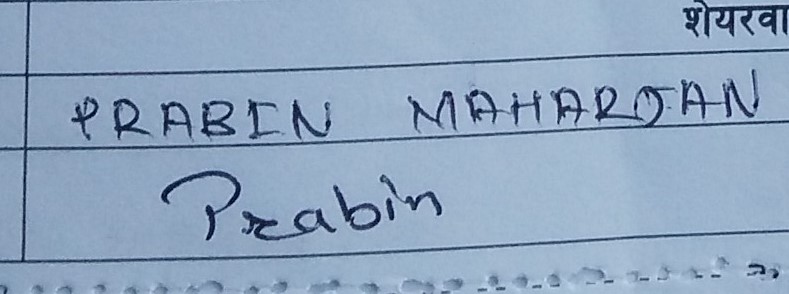 शेयरवा
PRABIN MAHARJAN
Prabin